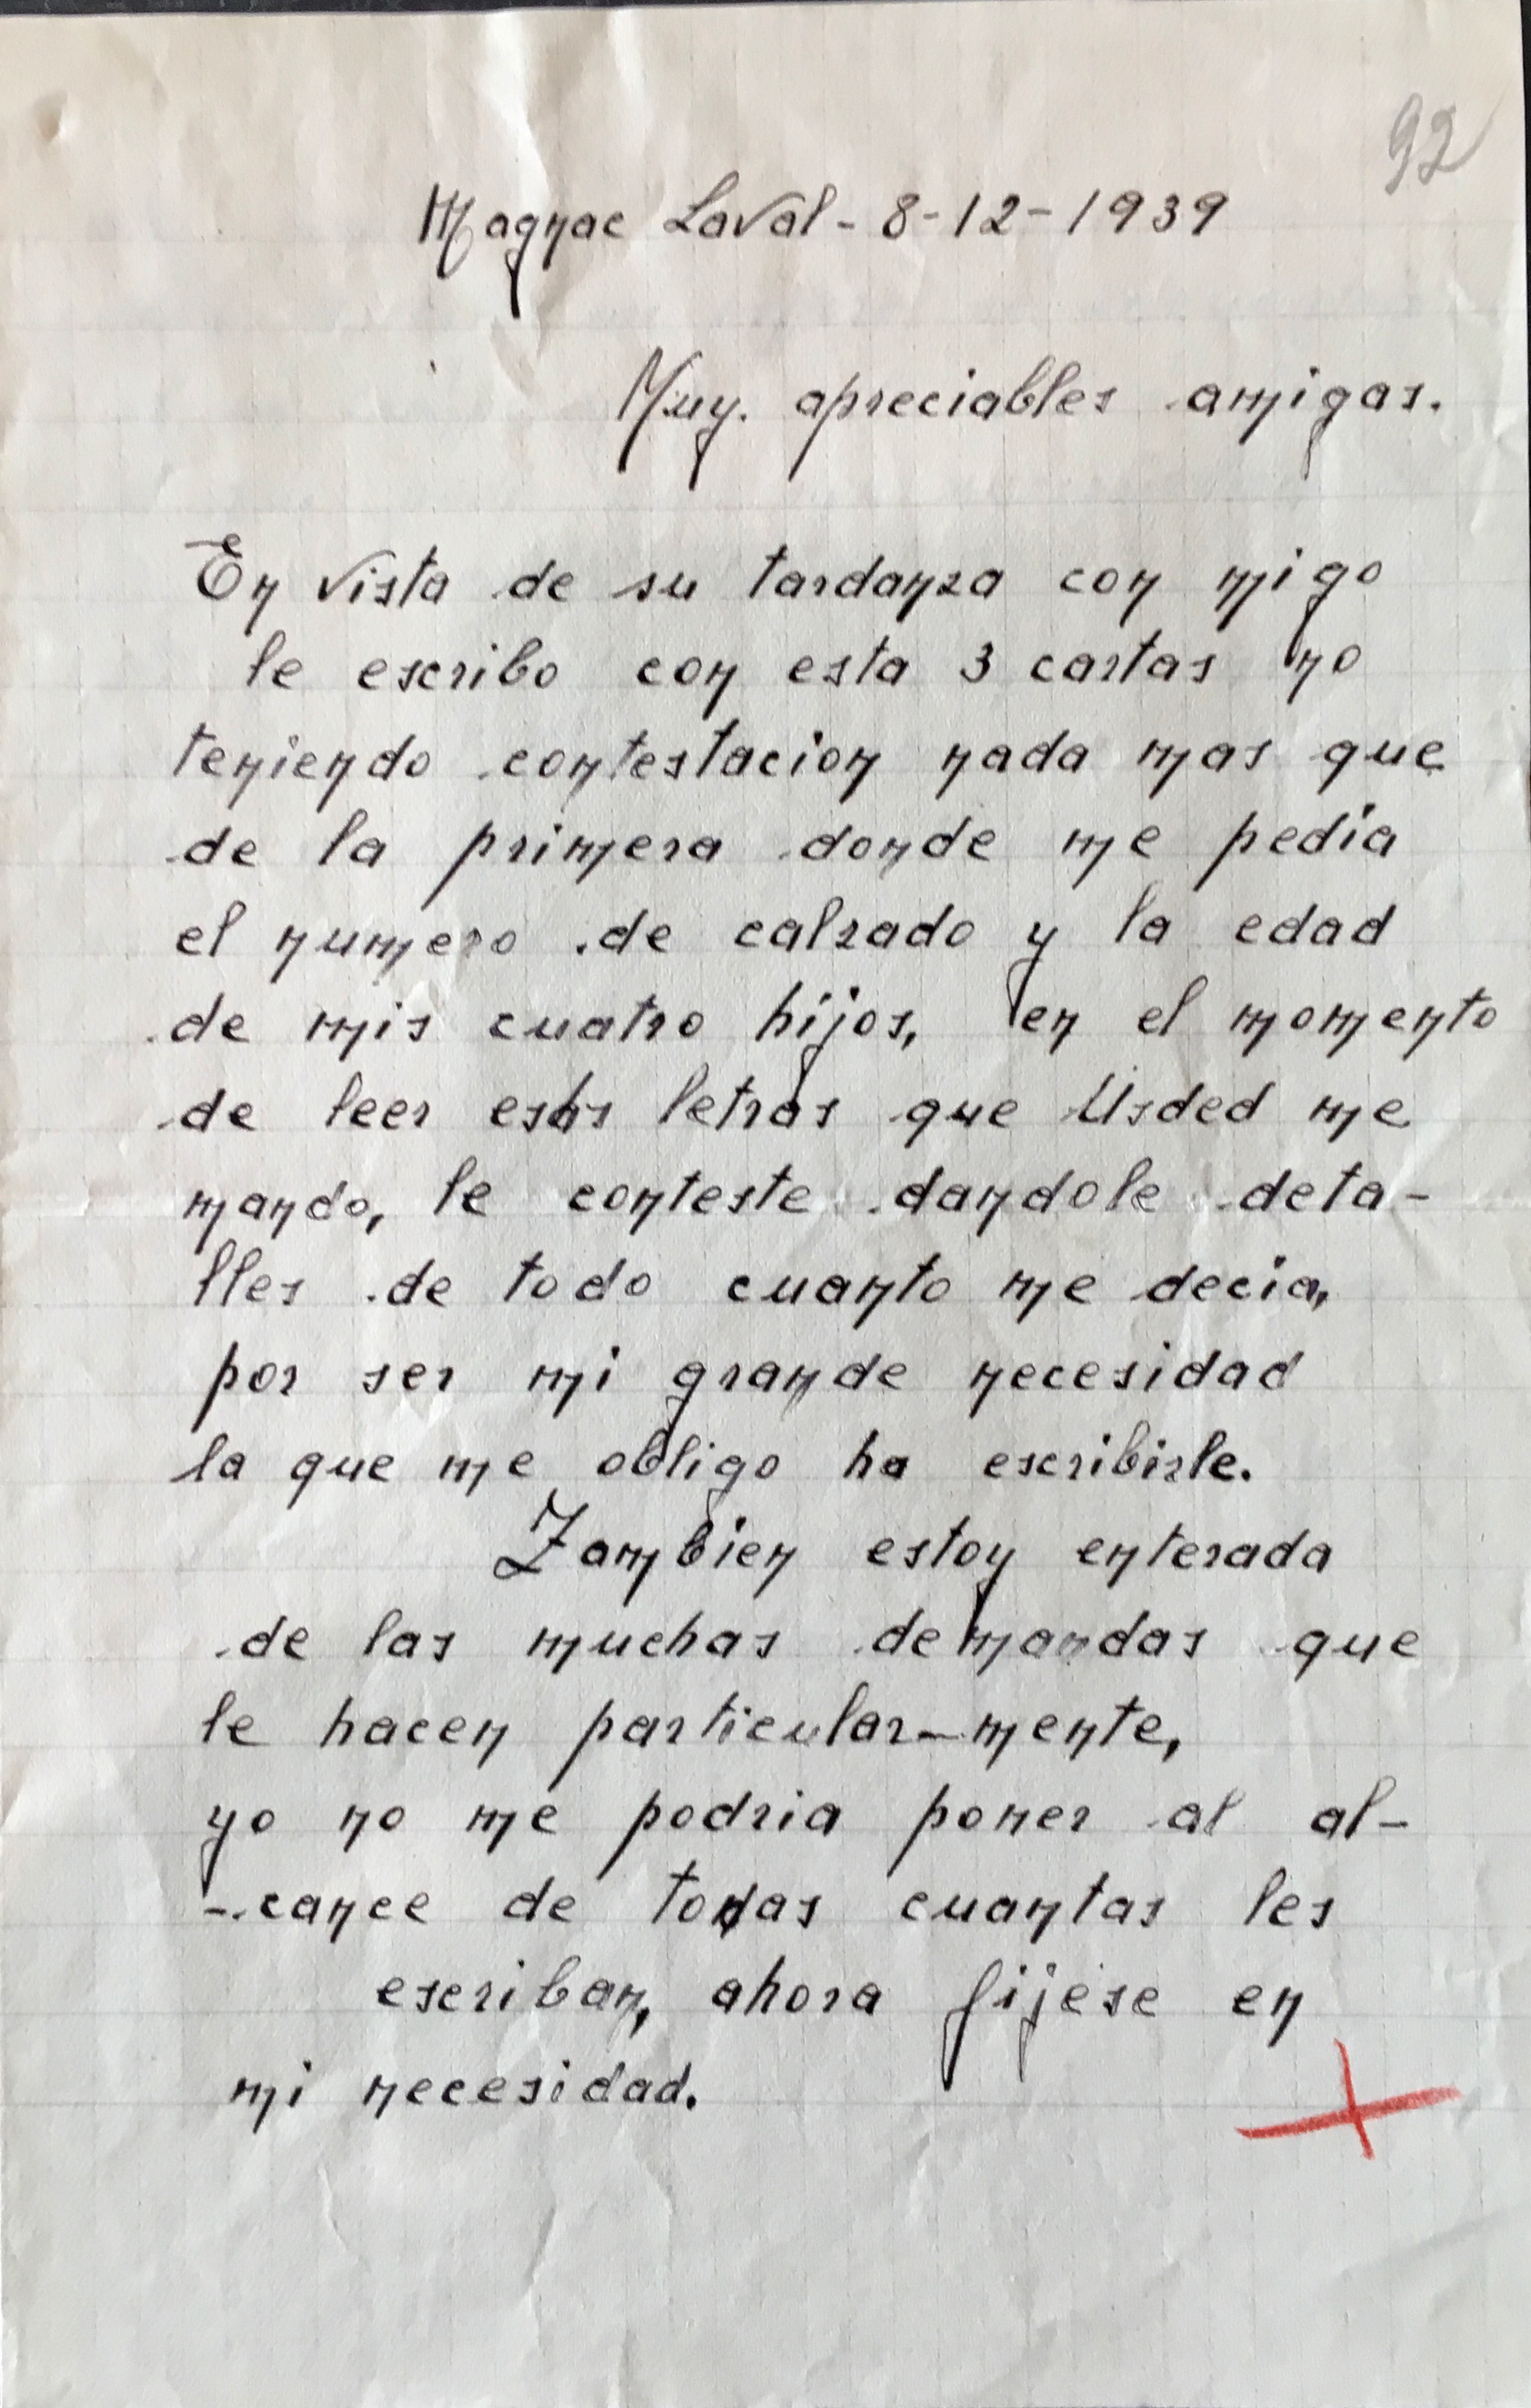 92
Magnac Laval - 8-12-1939
Muy. apreciables amigas.
En vista de su tardanza con migo
le escribo con esta 3 cartas no
teniendo contestacion nada mas que
de la primera donde me pedia
el numero de calzado y la edad
de mis cuatro hijos, en el momento
de leer estas letras que Usded me
mando, le conteste dandole deta-
lles de todo cuanto me decia,
por ser mi grande necesidad
la que me obligo ha escribirle.
Tambien estoy enterada
de las muchas demandas que
le hacen particular-mente,
yo no me podria poner al al-
-cance de todas cuantas les
escriban, ahora fijese en
mi necesidad.